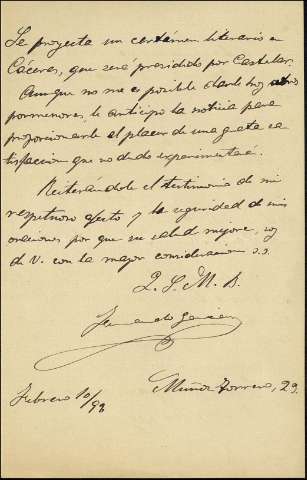 Se proyecta un certámen literario en
Cáceres, que será presidido por Castelar.
Aunque no me es posible darle hoy otros
pormenores, le anticipo la noticia para
proporcionarle el placer de una grata sa-
tisfaccion que no dudo experimentará.
Reiterándole el testimonio de mi
respetuoso afecto y la seguridad de mis
oraciones por que su salud mejore, soy
de V. con la mayor consideracion s.s.
Q. S. M. B.
Fernando García
Febrero 10/93
Muñoz Torrero, 29.